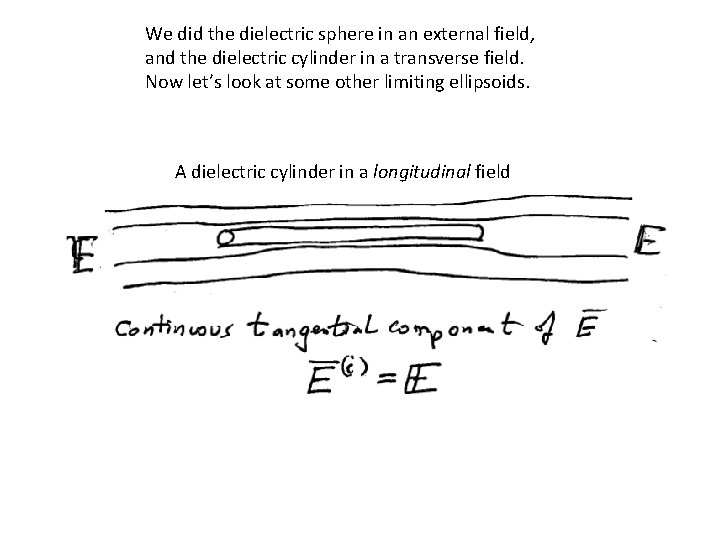 We did the dielectric sphere in an external field,
and the dielectric cylinder in a transverse field.
Now let’s look at some other limiting ellipsoids.
A dielectric cylinder in a longitudinal field
E E
Continuous tangential component of E̅
E̅⁽ⁱ⁾ = E